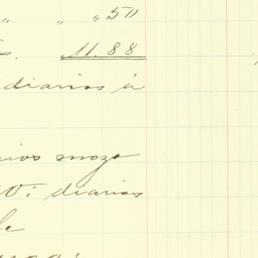 " " " 50
s. 11.88
diarios á
rios mozo
0: diarios
de